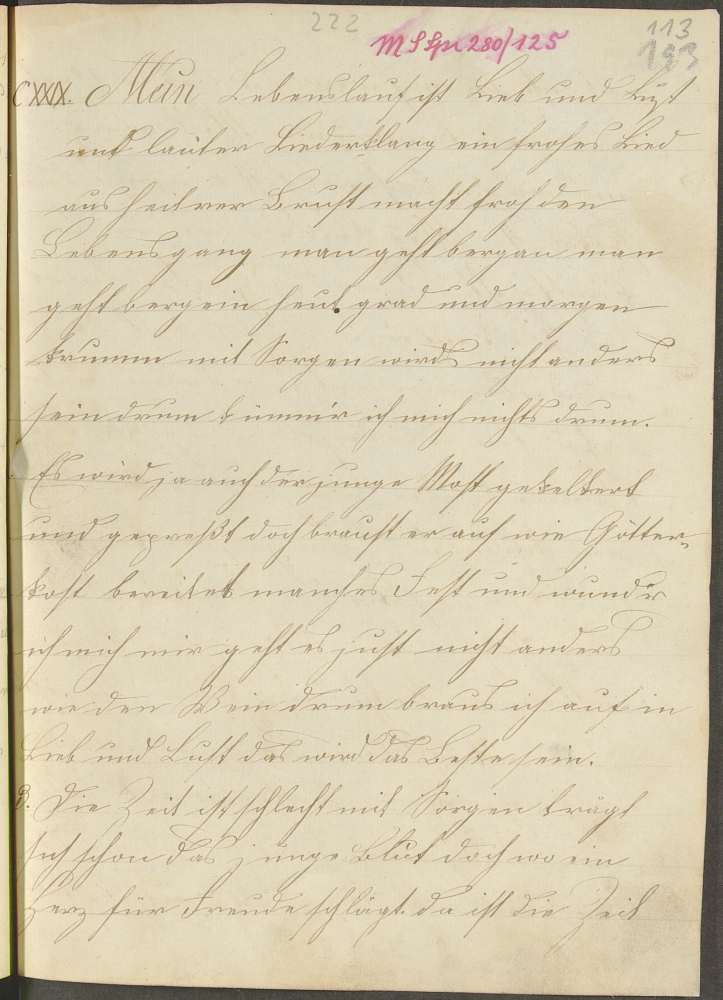 222
MS Spr 280/125
113
193
CXXIX. Mein Lebenslauf ist Lieb und Lust
und lauter Liederklang ein frohes Lied
aus heitrer Brust macht froh den
Lebensgang man geht bergan man
geht bergein heut grad und morgen
krumm mit Sorgen wirds nicht anders
sein drum kümmr ich mich nichts drum.
Es wird ja auch der junge Most gekeltert
und gepreßt doch braust er auf wie Götter-
kost bereitet manches Fest und wundr
ich mich mir geht es just nicht anders
wie den Wein drum braus ich auf in
Lieb und Lust das wird das Beste sein.
3. Die Zeit ist schlecht mit Sorgen trägt
sich schon das junge Blut doch wo ein
Herz für Freude schlägt da ist die Zeit